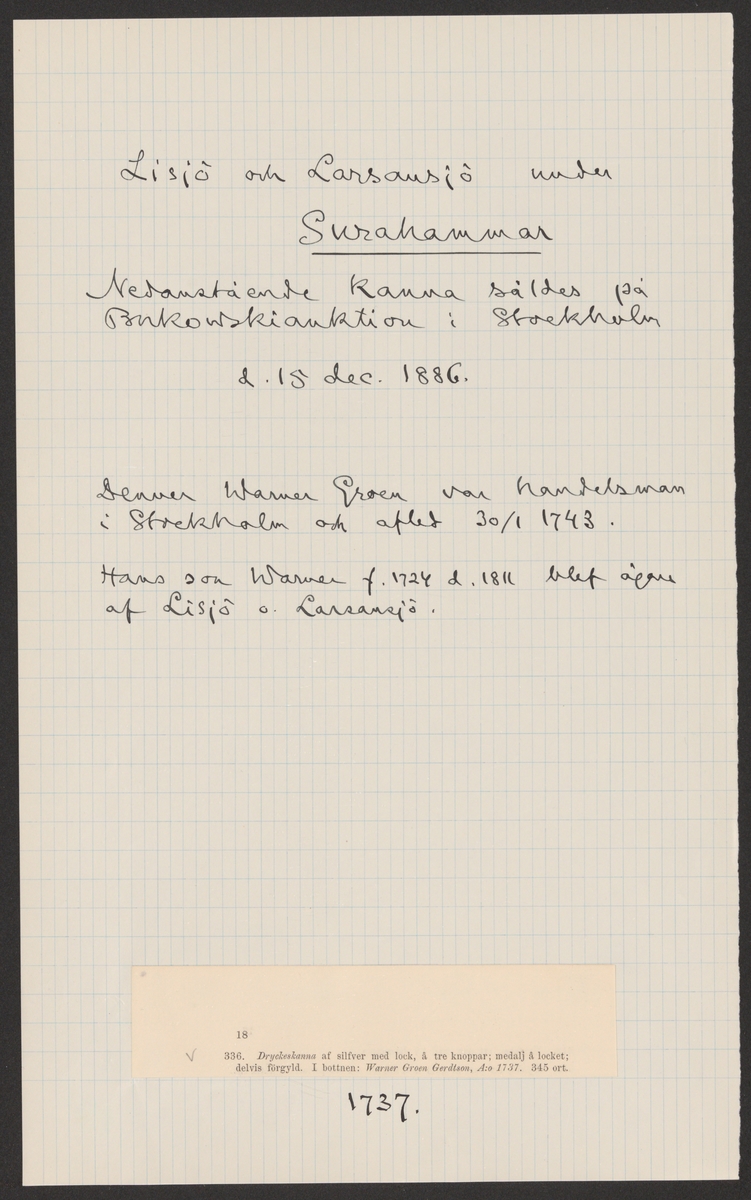 Lisjö och Larsansjö under
Surahammar
Nedanstående kanna såldes på
Bukowskiauktion i Stockholm
d. 15 dec. 1886.
Denner Warner Groen var handelsman
i Stockholm och afled 30/1 1743.
Hans son Warner f. 1724 d. 1811 blef ägare
af Lisjö o. Larsansjö.
18
336. Dryckeskanna af silfver med lock, å tre knoppar; medalj å locket;
delvis förgyld. I bottnen: Warner Groen Gerdtson, A:o 1737. 345 ort.
1737.